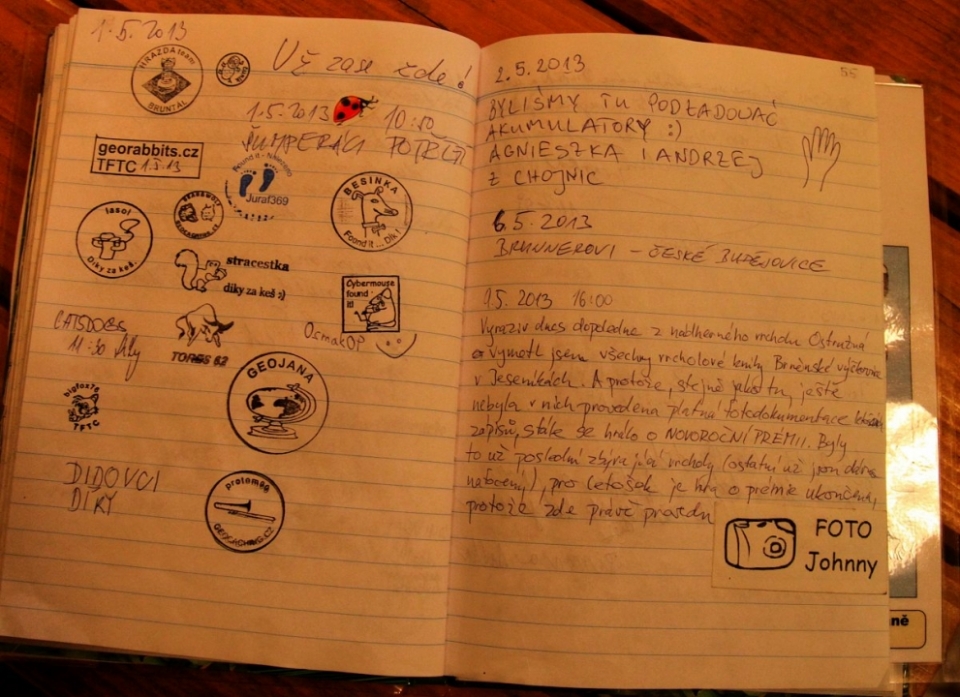 1.5.2013
HVĚZDA team
BRUNTÁL
Už zase zde!
1.5.2013 10:10
ŠUMPERÁCI POTŘETÍ
georabbits.cz
TFTC 1.5.13
Found it
Juraf369
BESINKA
Found it ... Dík!
Jasoi
Díky za keš.
stracestka
díky za keš :)
Cybermouse
found
it!
OsmakOP
CATSDOGS
11:30
TOROS 62
GEOJANA
bigfox76
TFTC
DIDOVCI
DÍKY
protom66
GEOCACHING.CZ
2.5.2013
55
BYLIŚMY TU PODŁADOWAĆ
AKUMULATORY :)
AGNIESZKA I ANDRZEJ
Z CHOJNIC
6.5.2013
BRUNNEROVI – ČESKÉ BUDĚJOVICE
9.5. 2013 16:00
Vyrazil dnes dopoledne z nádherného vrcholu Ostružná
a vymetl jsem všechny vrcholové knihy
v Jeseníkách. A protože, stejně jako tu, ještě
nebyla v nich provedena platná fotodokumentace
zápisů, stále se hrálo o NOVOROČNÍ PRÉMII. Byly
to už poslední zbývající vrcholy (ostatní už jsou dávno
nafoceny), pro letošek je hra o prémie ukončena,
protože zde právě provedu
FOTO
Johnny
ně